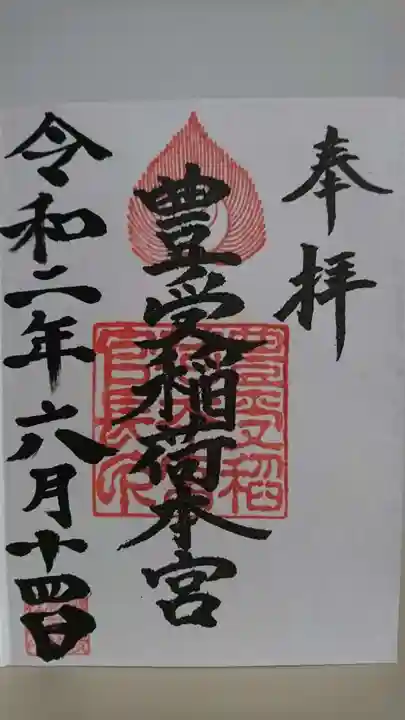 奉拝
豊受稲荷本宮
令和二年六八月十四日